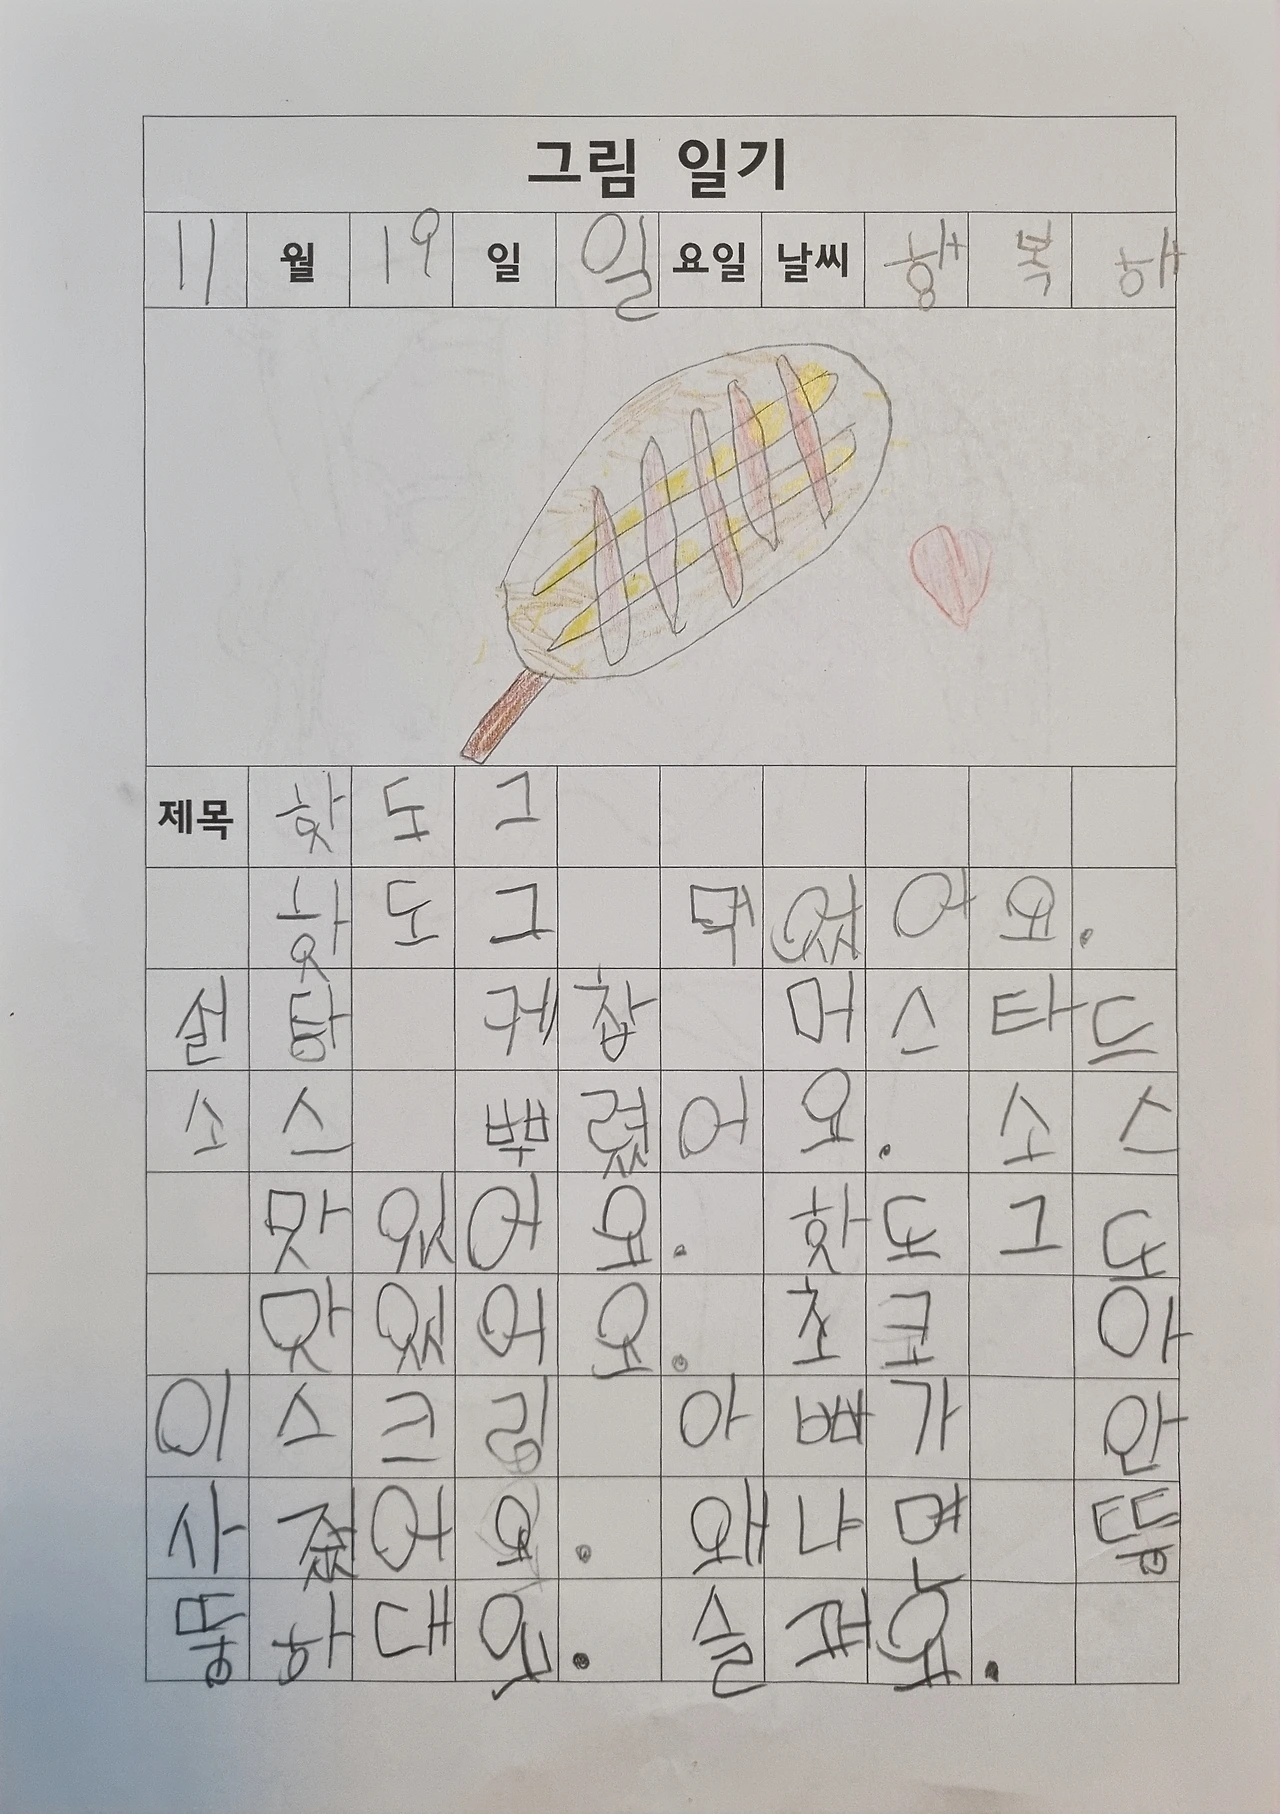 그림 일기
11 월 19 일 일 요일 날씨 행 복 해
제목 핫도그
핫도그 먹었어요.
설탕 케찹 머스타드
소스 뿌렸어요. 소스
맛있어요. 핫도그도
맛있어요. 초코 아
이스크림 아빠가 안
사줬어요. 왜냐면 뚱
뚱하대요. 슬퍼요.